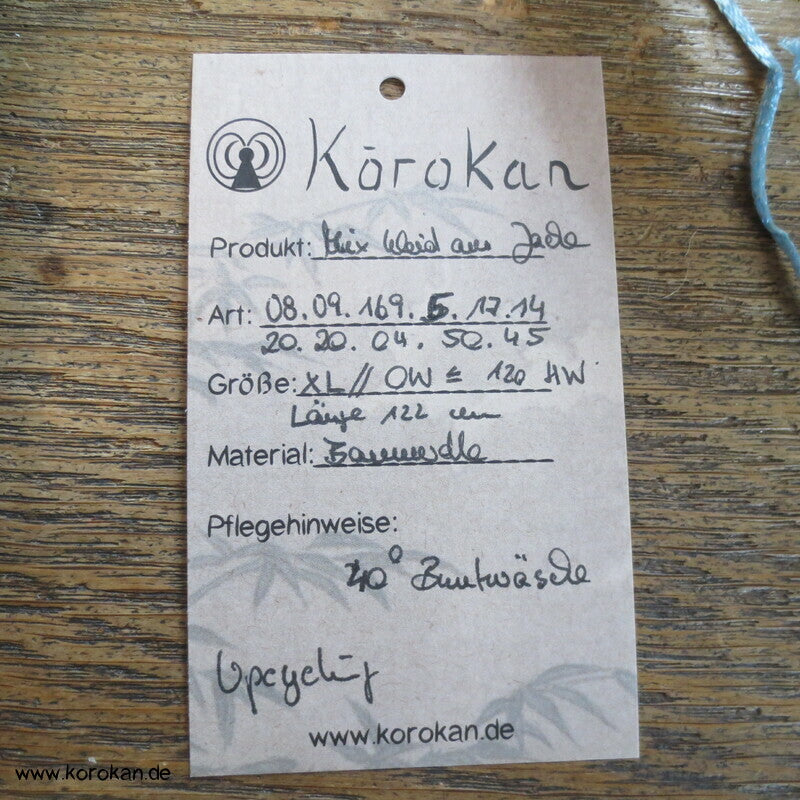 Kōrokan
Produkt: Mix Kleid aus Jacke
Art: 08.09.169.5.17.14
20.20.04.50.45
Größe: XL// OW ≤ 120 HW
Länge 122 cm
Material: Baumwolle
Pflegehinweise:
40° Buntwäsche
Upcycling
www.korokan.de
www.korokan.de